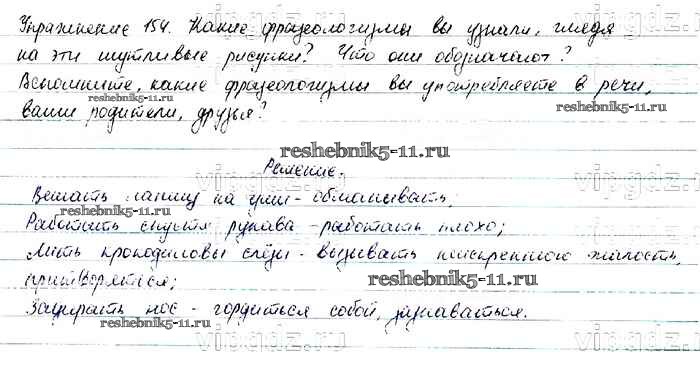 Упражнение 154. Какие фразеологизмы вы узнали, глядя
на эти шутливые рисунки? Что они обозначают?
Вспомните, какие фразеологизмы вы употребляете в речи,
reshebnik5-11.ru
ваши родители, друзья?
reshebnik5-11.ru
vipgdz.ru
Решение.
Вешать лапшу на уши - обманывать;
reshebnik5-11.ru
Работать спустя рукава - работать плохо;
Лить крокодиловы слёзы - вызывать неискреннюю жалость,
притворяться;
reshebnik5-11.ru
Задирать нос - гордиться собой, зазнаваться.
reshebnik5-11.ru
vipgdz.ru